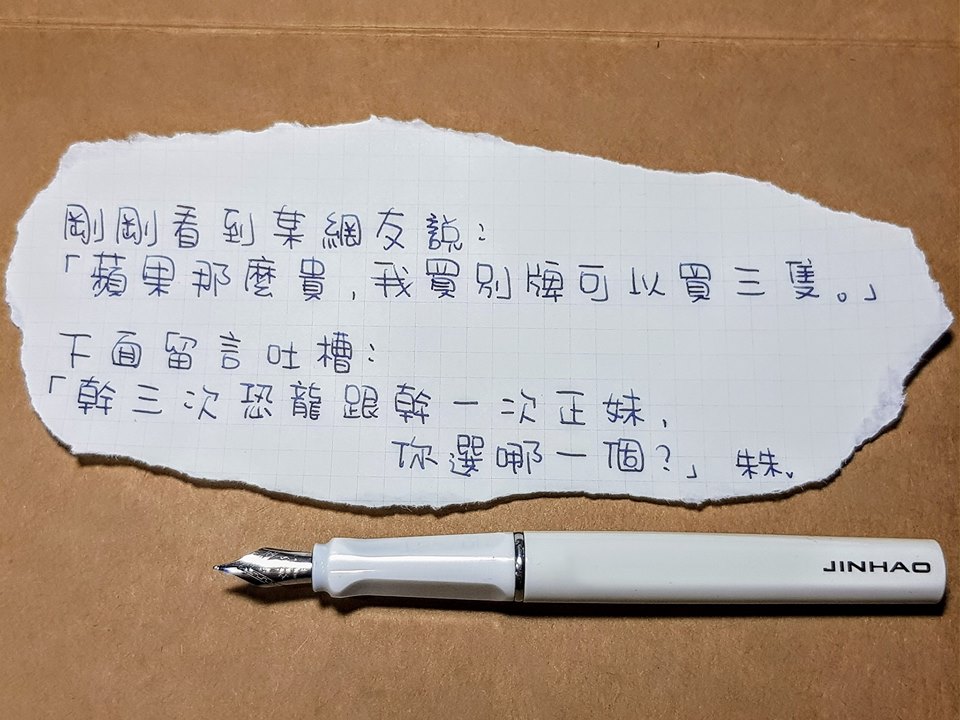 剛剛看到某網友說：
「蘋果那麼貴，我買別牌可以買三隻。」
下面留言吐槽：
「幹三次恐龍跟幹一次正妹，
你選哪一個？」 朱朱。
JINHAO